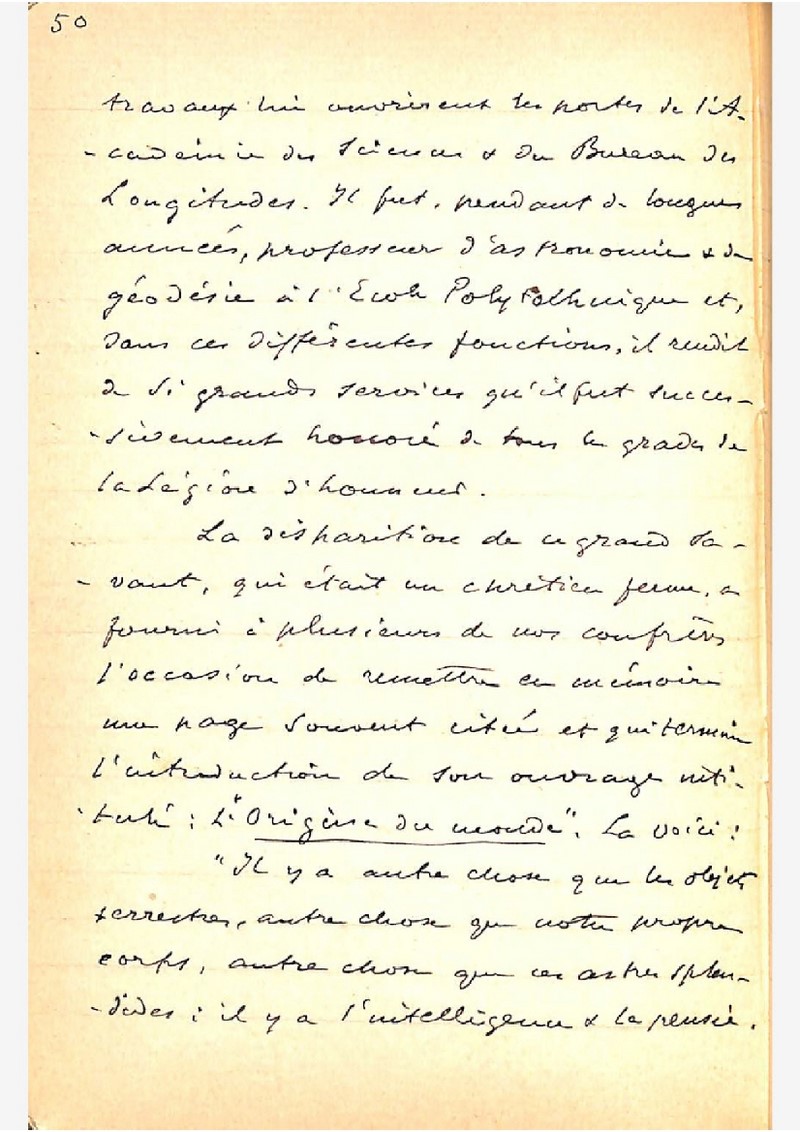 50
travaux lui ouvrirent les portes de l'A-
-cadémie des Sciences & du Bureau des
Longitudes. Il fut, pendant de longues
années, professeur d'astronomie & de
géodésie à l'Ecole Polytechnique et,
dans ces différentes fonctions, il rendit
de si grands services qu'il fut succes-
-sivement honoré de tous les grades de
la Légion d'honneur.
La disparition de ce grand sa-
-vant, qui était un chrétien ferme, a
fourni à plusieurs de nos confrères
l'occasion de remettre en mémoire
une page souvent citée et qui termine
l'introduction de son ouvrage inti-
-tulé : "L'Origine du monde". La voici :
"Il y a autre chose que les objets
terrestres, autre chose que notre propre
corps, autre chose que ces astres splen-
-dides : il y a l'intelligence & la pensée.